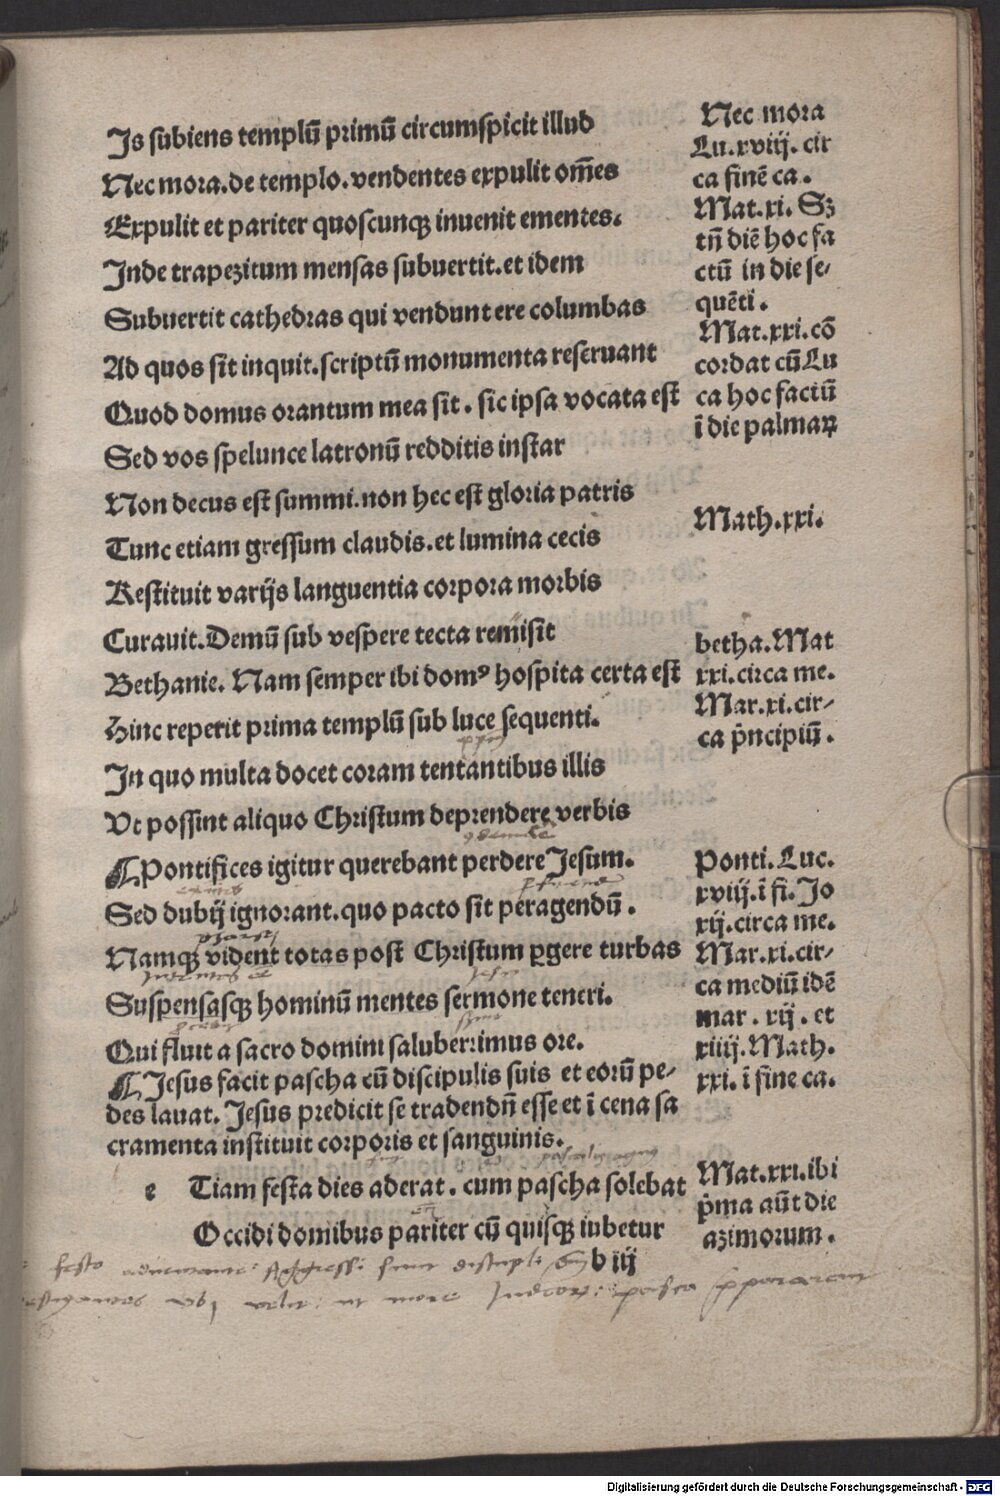 Is subiens templū primū circumspicit illud
Nec mora.de templo.vendentes expulit om̄es
Expulit et pariter quoscunqꝫ inuenit ementes.
Inde trapezitum mensas subuertit.et idem
Subuertit cathedras qui vendunt ere columbas
Ad quos sit inquit.scriptū monumenta reseruant
Quod domus orantum mea sit. sic ipsa vocata est
Sed vos spelunce latronū redditis instar
Non decus est summi.non hec est gloria patris
Tunc etiam gressum claudis.et lumina cecis
Restituit varijs languentia corpora morbis
Curauit.Demū sub vespere tecta remisit
Bethanie. Nam semper ibi domꝰ hospita certa est
Hinc repetit prima templū sub luce sequenti.
In quo multa docet coram tentantibus illis
Vt possint aliquo Christum deprendere verbis
¶Pontifices igitur querebant perdere Jesum.
Sed dubij ignorant.quo pacto sit peragendū.
Namqꝫ vident totas post Christum ꝑgere turbas
Suspensasqꝫ hominū mentes sermone teneri.
Qui fluit a sacro domini saluberrimus ore.
¶Jesus facit pascha cū discipulis suis et eorū pe/
des lauat. Jesus predicit se tradendū esse et ī cena sa
cramenta instituit corporis et sanguinis.
e Tiam festa dies aderat. cum pascha solebat
Occidi domibus pariter cū quisqꝫ iubetur
b iij
Nec mora
Lu.xviij. cir
ca finē ca.
Mat.xi. Sꝫ
tn̄ diē hoc fa
ctū in die se/
quēti.
Mat.xxi.cō
cordat cū Lu
ca hoc factū
ī die palmaꝝ
Math.xxi.
betha.Mat
xxi.circa me.
Mar.xi.cir/
ca p̄ncipiū.
Ponti. Luc.
xviij.ī fi. Jo
xij.circa me.
Mar.xi.cir/
ca mediū idē
mar. xij. et
xiiij.Math.
xxi. ī fine ca.
Mat.xxi.ibi
p̄ma aūt die
azimorum.
festo
Digitalisierung gefördert durch die Deutsche Forschungsgemeinschaft - DFG